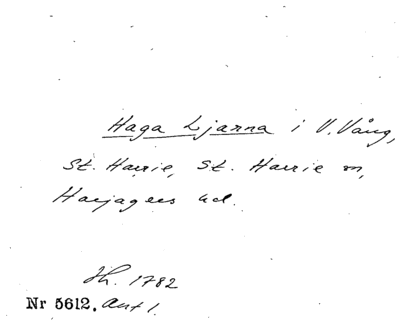 Haga Ljarna i V. Vång,
St. Harrie, St. Harrie sn,
Harjagers hd.
Jh. 1782
Nr 5612. Akt 1.